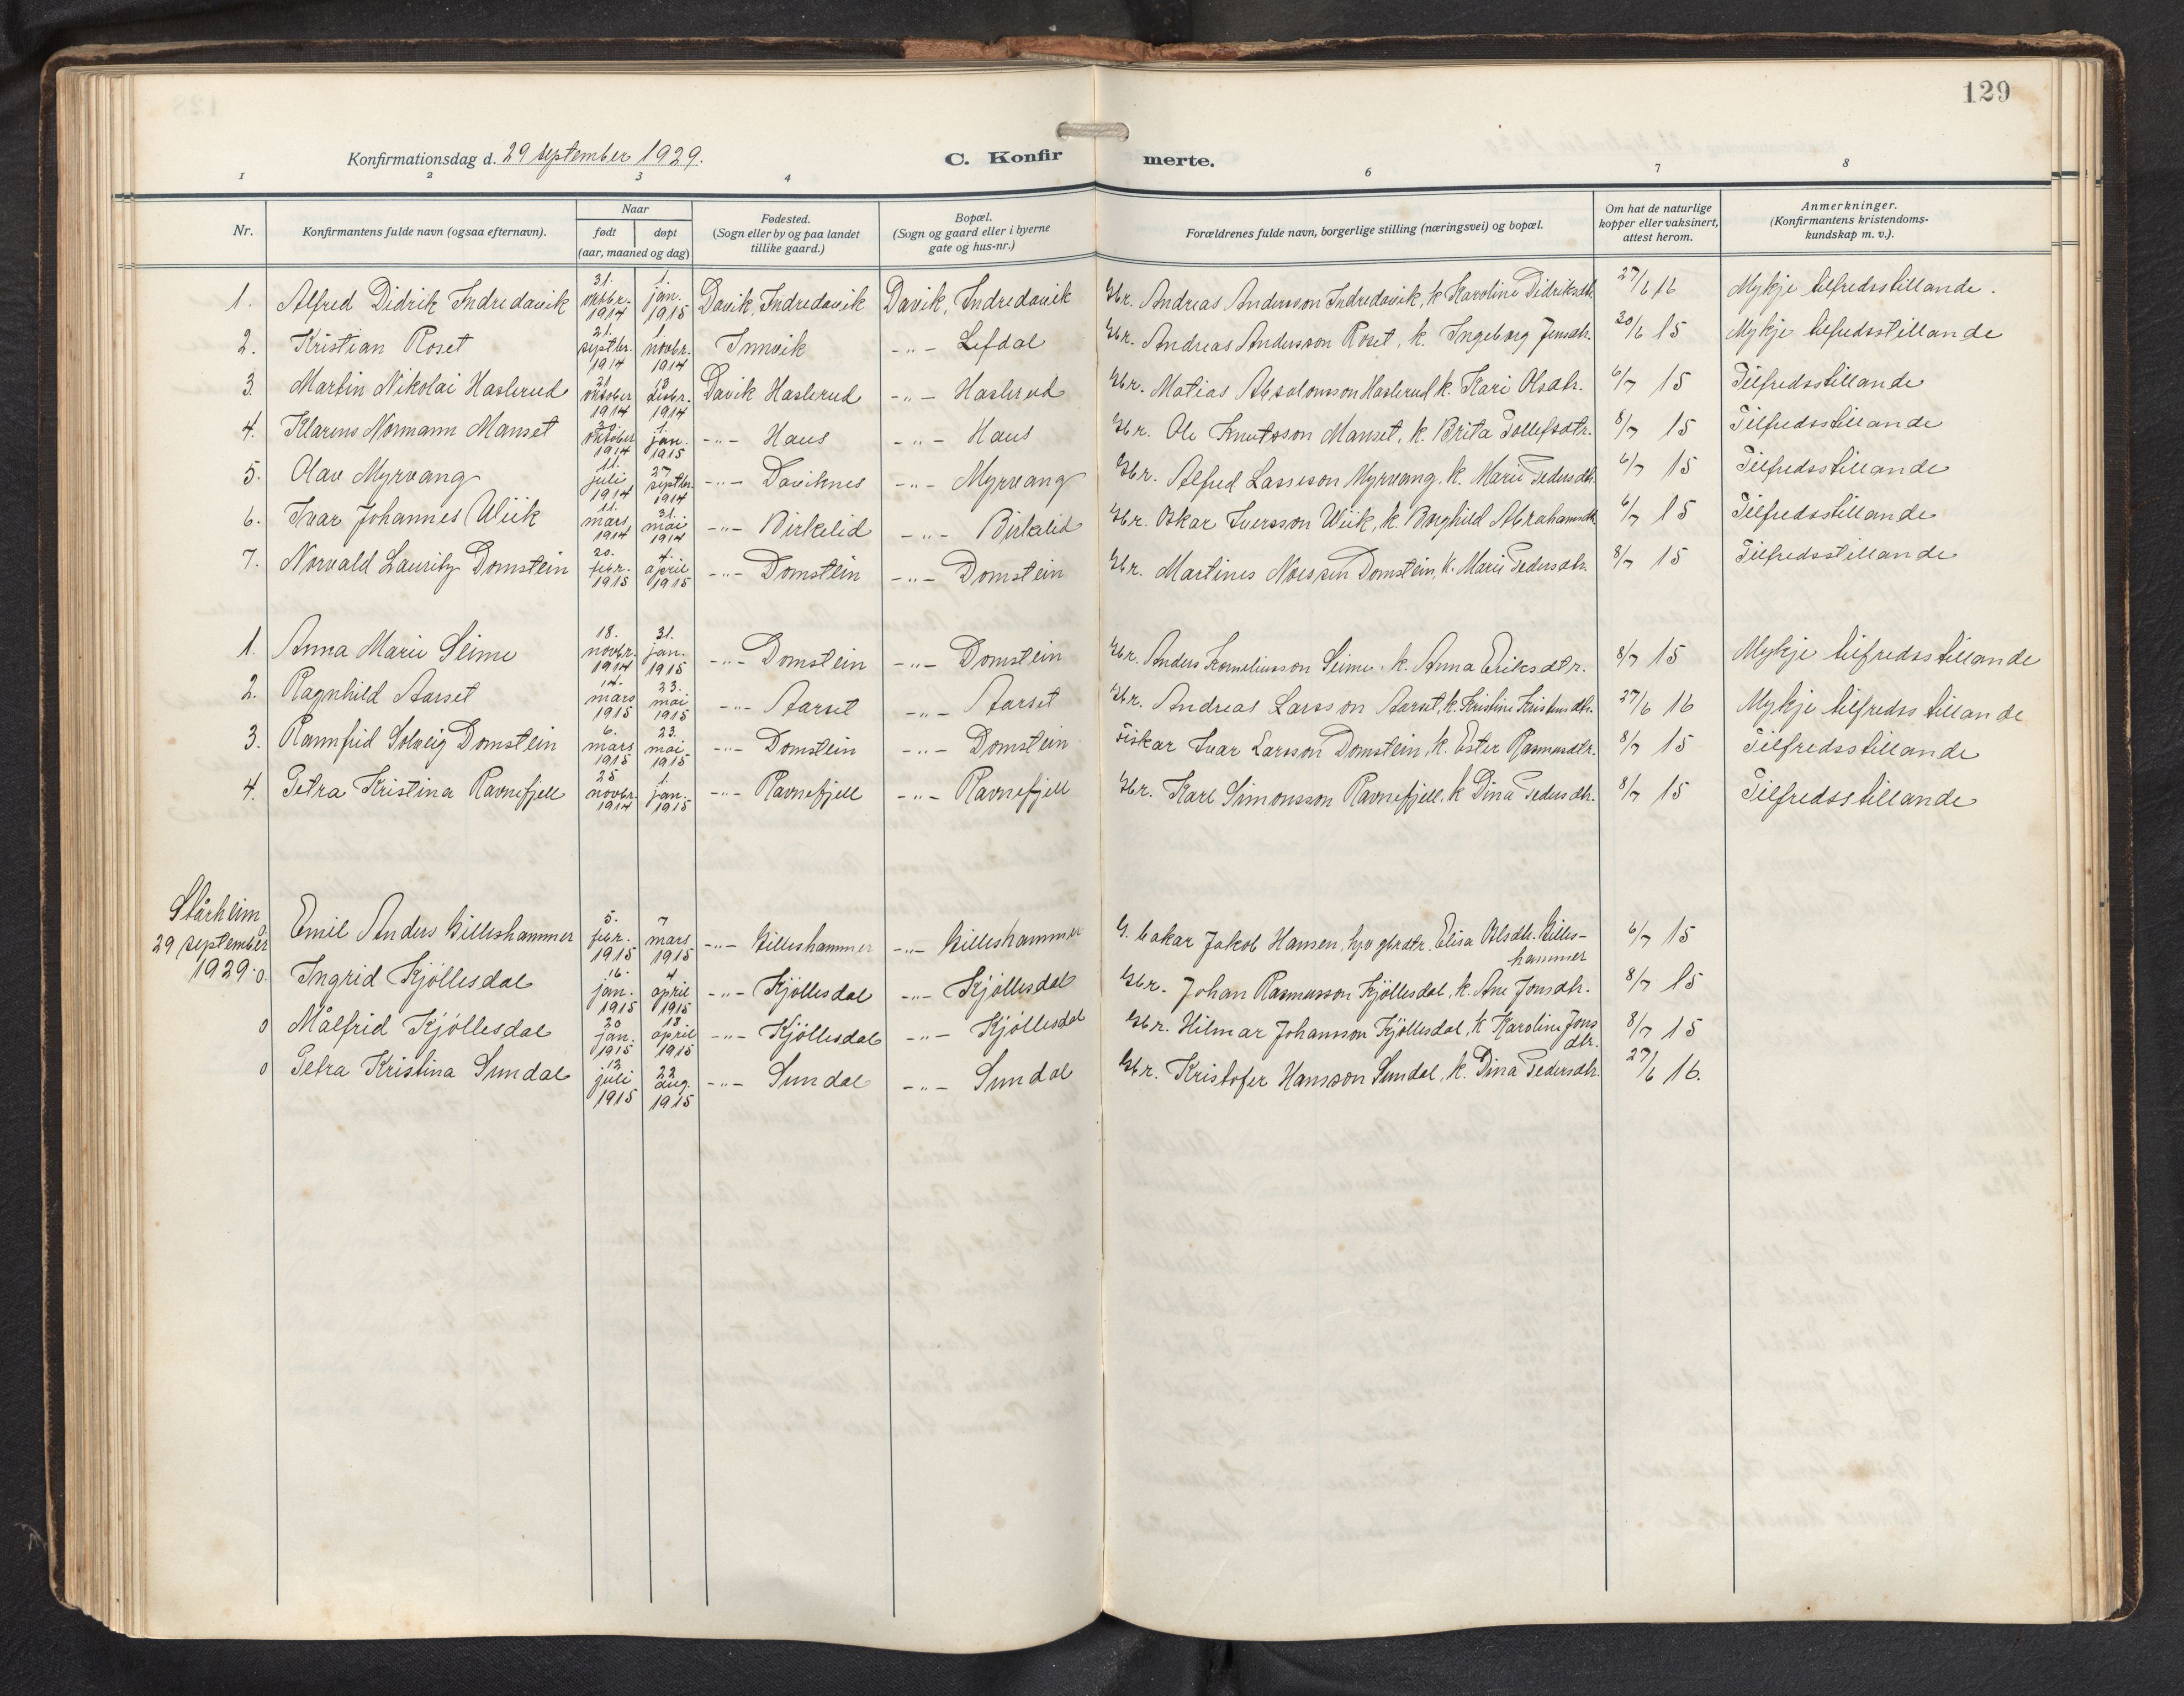 129
Konfirmationsdag d. 29 september 1929. C. Konfirmerte.
1 2 3 4 6 7 8
Nr. Konfirmantens fulde navn (ogsaa efternavn). Naar født døpt (aar, maaned og dag) Fødested. (Sogn eller by og paa landet tillike gaard.) Bopæl. (Sogn og gaard eller i byerne gate og hus-nr.) Forældrenes fulde navn, borgerlige stilling (næringsvei) og bopæl. Om hat de naturlige kopper eller vaksinert, attest herom. Anmerkninger. (Konfirmantens kristendoms-kundskap m. v.).
1. Alfred Didrik Indredavik 31. oktbr. 1914 1. jan. 1915 Davik, Indredavik Davik, Indredavik Gbr. Andreas Andersson Indredavik, k. Karoline Didriksdtr. 27/6 16 Mykje tilfredsstillande.
2. Kristian Roset 21. septbr. 1914 1. novbr. 1914 Innvik -"- Lefdal Gbr. Andreas Andersson Roset, k. Ingeborg Jensdtr. 20/6 15 Mykje tilfredsstillande
3. Martin Nikolai Haslerud 21. oktober 1914 13 desbr. 1914 Davik Haslerud -"- Haslerud Gbr. Matias Absalonsson Haslerud k. Kari Olsdtr. 6/7 15 Tilfredsstillande
4. Klarens Normann Manset oktober 1914 1. jan. 1915 -"- Haus -"- Haus Gbr. Ole Knutsson Manset, k. Brita Tollefsdtr. 8/7 15 Tilfredsstillande
5. Olav Myrvang 11. juli 1914 27 septbr. 1914 -"- Daviknes -"- Myrvang Gbr. Alfred Lassesson Myrvang, k. Marie Pedersdtr. 6/7 15 Tilfredsstillande
6. Ivar Johannes Wiik 11. mars 1914 31. mai 1914 -"- Birkelid -"- Birkelid Gbr. Oskar Iversson Wiik, k. Borghild Abrahamsdtr. 6/7 15 Tilfredsstillande
7. Norvald Lauritz Domstein 20. febr. 1915 4. april 1915 -"- Domstein -"- Domstein Gbr. Martines Domstein, k. Marie Pedersdtr. 8/7 15 Tilfredsstillande
1. Anna Marie Seime 18. novbr. 1914 31. jan. 1915 -"- Domstein -"- Domstein Gbr. Anders Korneliusson Seime k. Anna Eriksdtr. 8/7 15 Mykje tilfredsstillande
2. Ragnhild Aarset 14. mars 1915 23. mai 1915 -"- Aarset -"- Aarset Gbr. Andreas Larsson Aarset, k. Kristine Kristensdtr. 27/6 16 Mykje tilfredsstillande
3. Rannfrid Solveig Domstein 6. mars 1915 23. mai 1915 -"- Domstein -"- Domstein Fiskar Ivar Larsson Domstein, k. Ester Rasmusdtr. 8/7 15 Tilfredsstillande
4. Petra Kristina Ravnefjell 25 novbr. 1914 1. jan. 1915 -"- Ravnefjell -"- Ravnefjell Gbr. Karl Simonsson Ravnefjell, k Dina Pedersdtr. 8/7 15 Tilfredsstillande
Stårheim
29 september
1929.
o Emil Anders Gilleshammer 5. febr. 1915 7 mars 1915 -"- Gilleshammer -"- Gilleshammer Jakob Hansen, Elisa Olsdtr. Gilles-
hammer 6/7 15
o. Ingrid Kjöllesdal 16. jan. 1915 4. april 1915 -"- Kjöllesdal -"- Kjöllesdal Gbr. Johan Rasmusson Kjöllesdal, k. Ane Jonsdtr. 8/7 15
o Målfrid Kjöllesdal 20 jan. 1915 18. april 1915 -"- Kjöllesdal -"- Kjöllesdal Gbr. Hilmar Johansson Kjöllesdal, k Karoline Jons
dtr. 8/7 15
o Petra Kristina Sundal 12 juli 1915 22 aug. 1915 -"- Sundal -"- Sundal Gbr. Kristofer Hansson Sundal, k. Dina Pedersdtr. 27/6 16.